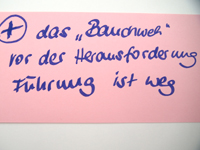 ⊕ das „Bauchweh“
vor der Herausforderung
Führung ist weg